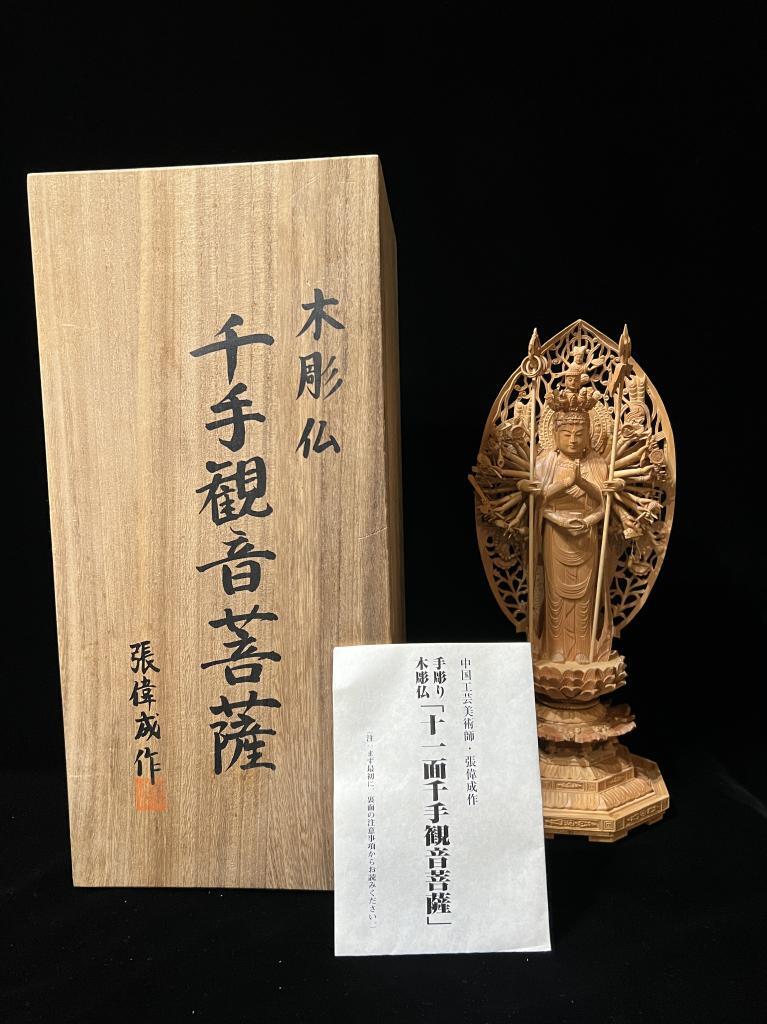 木彫仏
千手観音菩薩
張偉成作
中国工芸美術師・張偉成作
手彫り
木彫仏「十一面千手観音菩薩」
（注：まず最初に、裏面の注意事項からお読みください。）